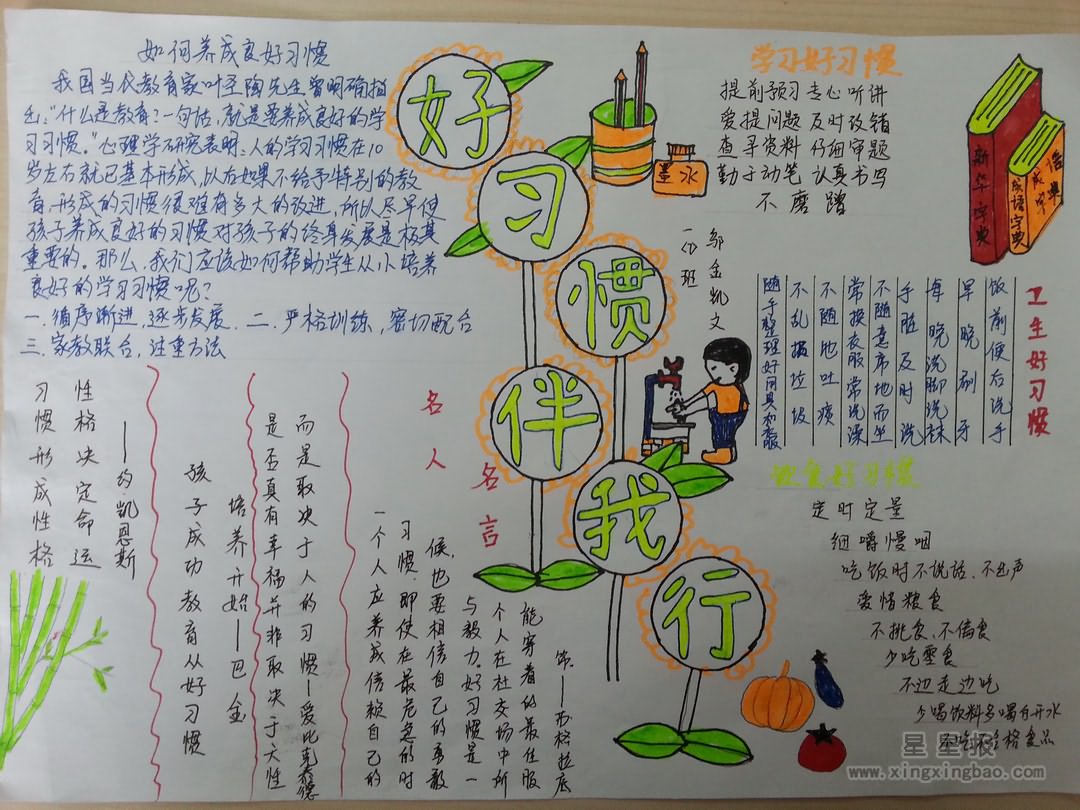 如何养成良好习惯
我国当代教育家叶圣陶先生曾明确指
出:“什么是教育?一句话,就是要养成良好的学
习习惯。”心理学研究表明:人的学习习惯在10
岁左右就已基本形成,以后如果不给予特别的教
育,形成的习惯很难有多大的改进,所以尽早使
孩子养成良好的习惯对孩子的终身发展是极其
重要的。那么,我们应该如何帮助学生从小培养
良好的学习习惯呢?
一.循序渐进,逐步发展.二.严格训练,密切配合
三.家教联合,注重方法
好
习
惯
伴
我
行
墨水
学习好习惯
提前预习 专心听讲
爱提问题 及时改错
查寻资料 仔细审题
勤于动笔 认真书写
不磨蹭
新华字典
成语字典
邹金凯文
卫生好习惯
饭前便后洗手
早晚刷牙
每晚洗脚洗袜
手脏及时洗
不随意席地而坐
常换衣服常洗澡
不随地吐痰
不乱扔垃圾
饮食好习惯
定时定量
细嚼慢咽
吃饭时不说话、不出声
爱惜粮食
不挑食、不偏食
少吃零食
不边走边吃
少喝饮料多喝白开水
不吃不合格食品
名人名言
习惯形成性格
性格决定命运
——约.凯恩斯
孩子成功教育从好习惯
培养开始——巴金
是否真有幸福并非取决于天性
而是取决于人的习惯—爱比克泰德
一个人应养成信赖自己的
习惯,即使在最危急的时
候,也要相信自己的勇敢
与毅力。好习惯是一
个人在社交场中所
能穿着的最佳服
饰。——苏格拉底
星星报
www.xingxingbao.com